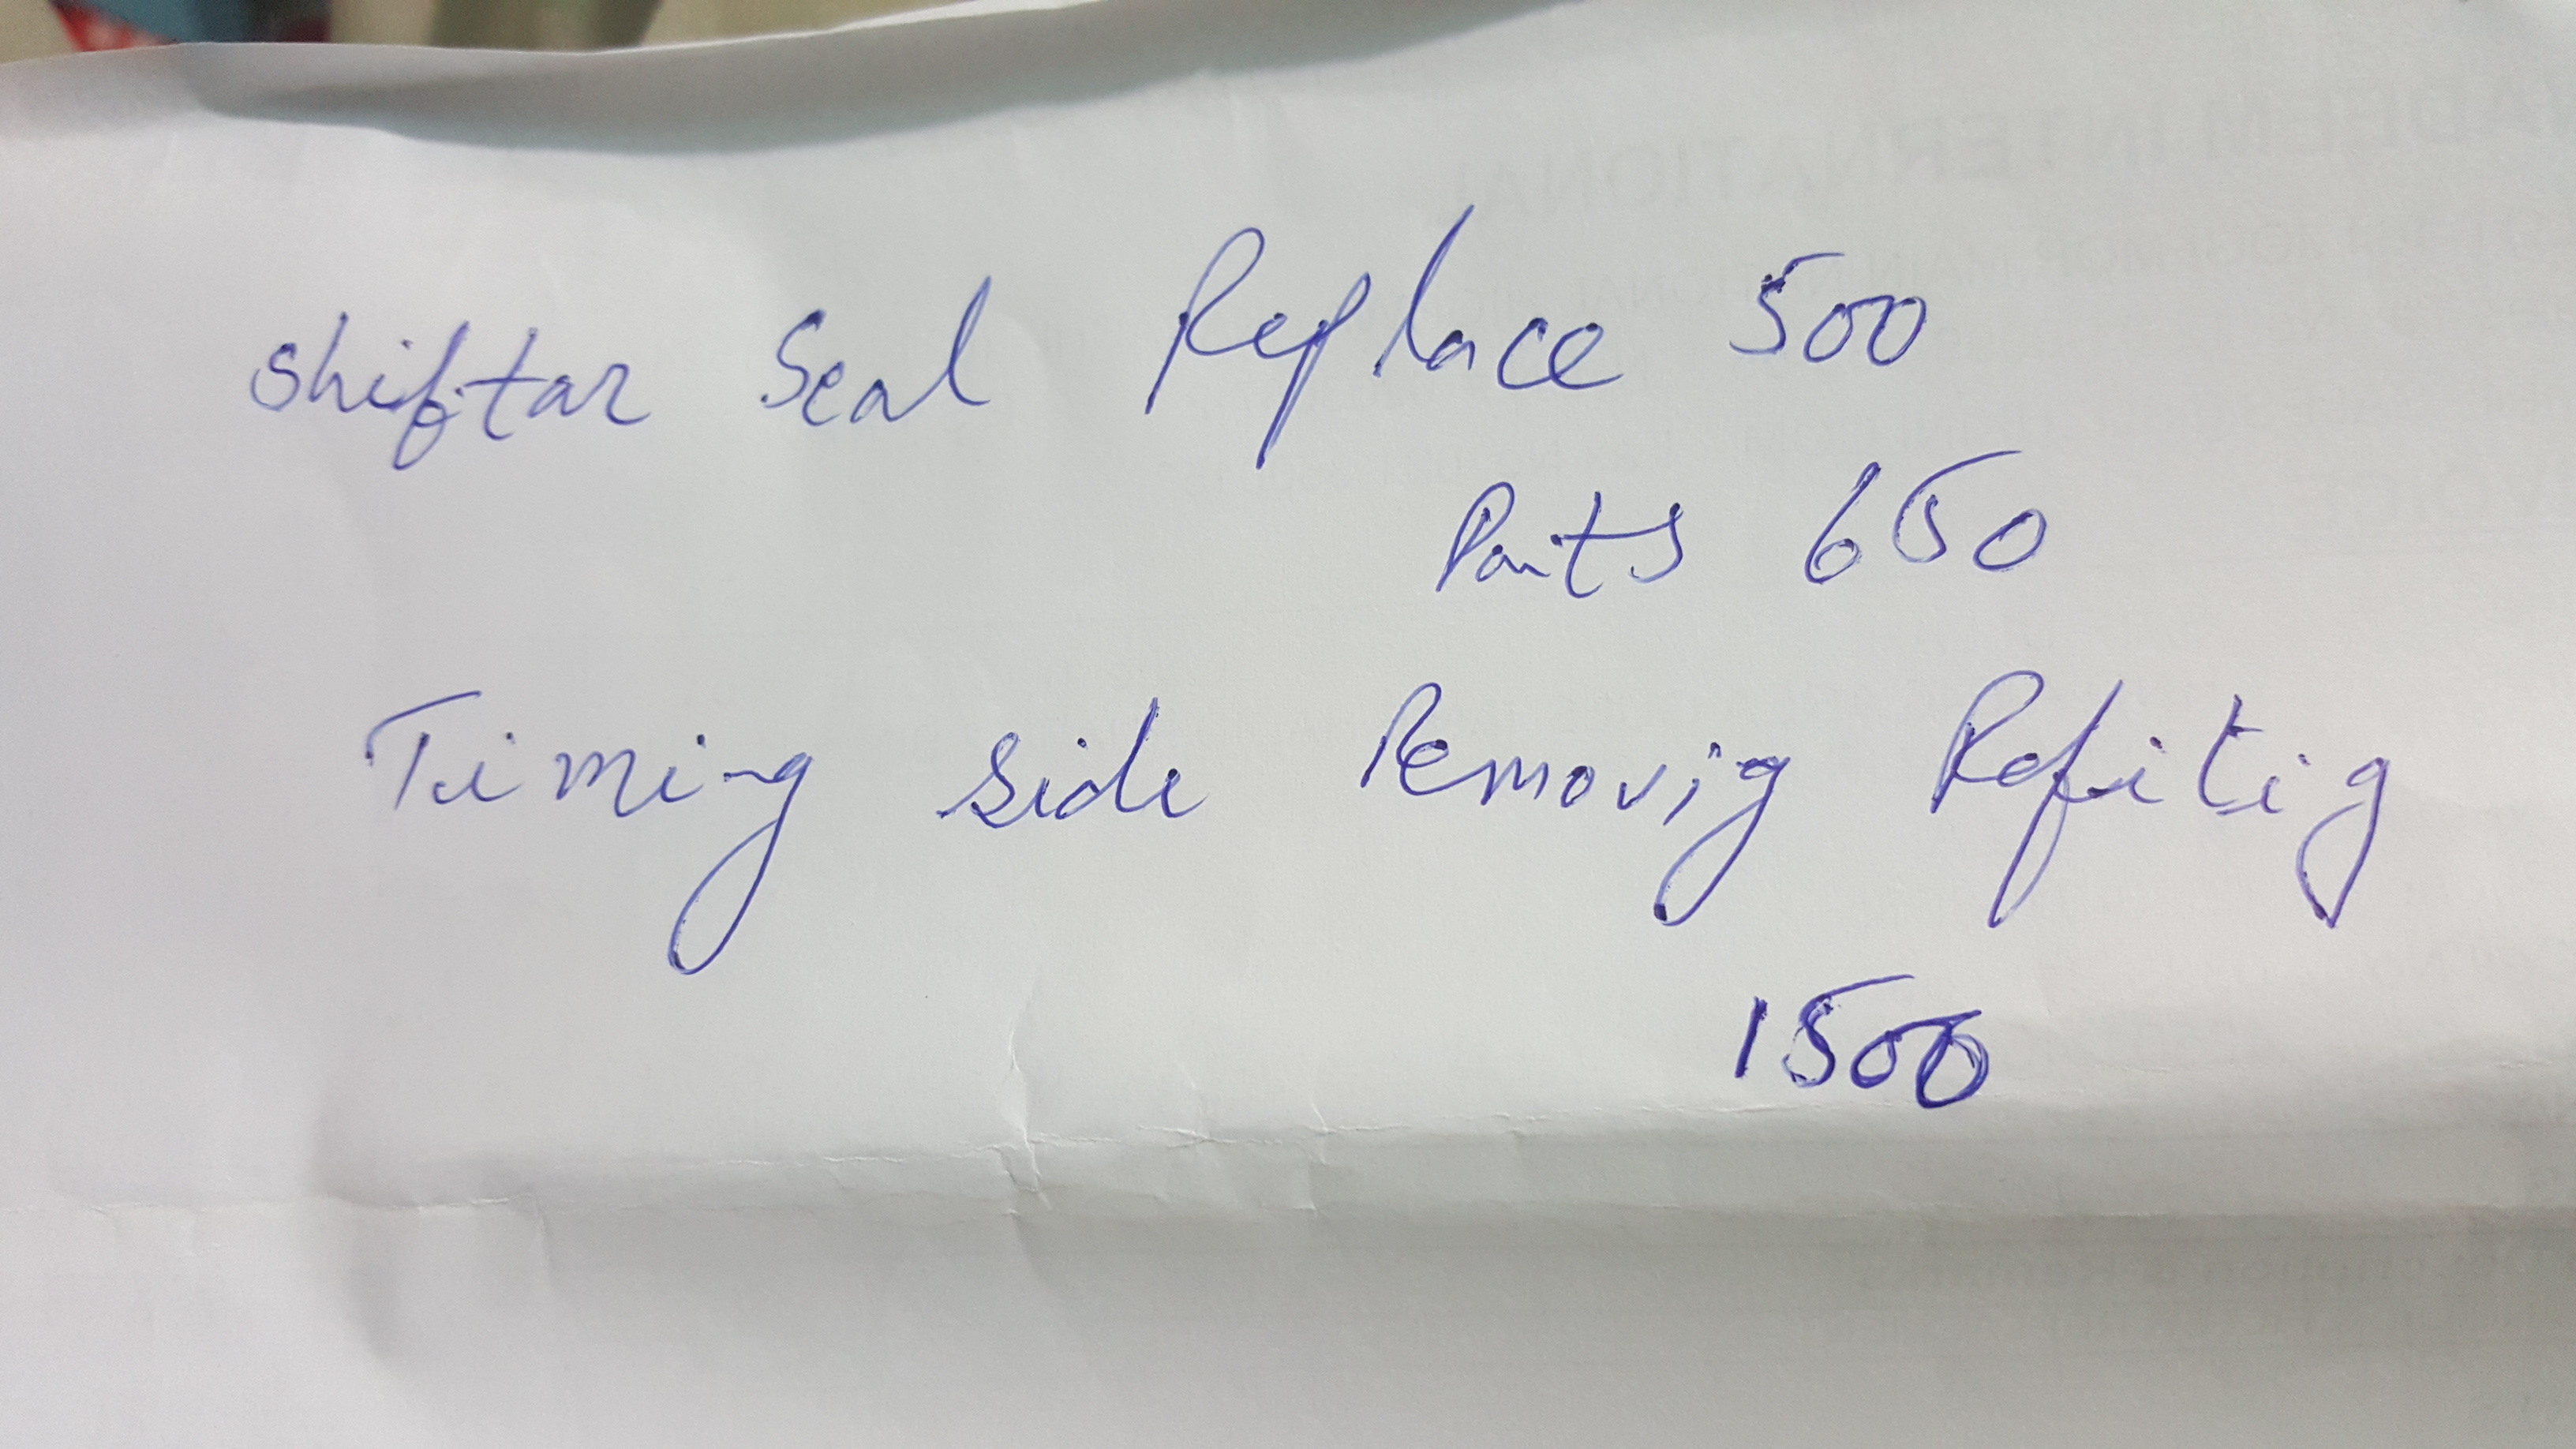 Shiftar Seal Replace 500
Parts 650
Timing side Removig Refitig
1500